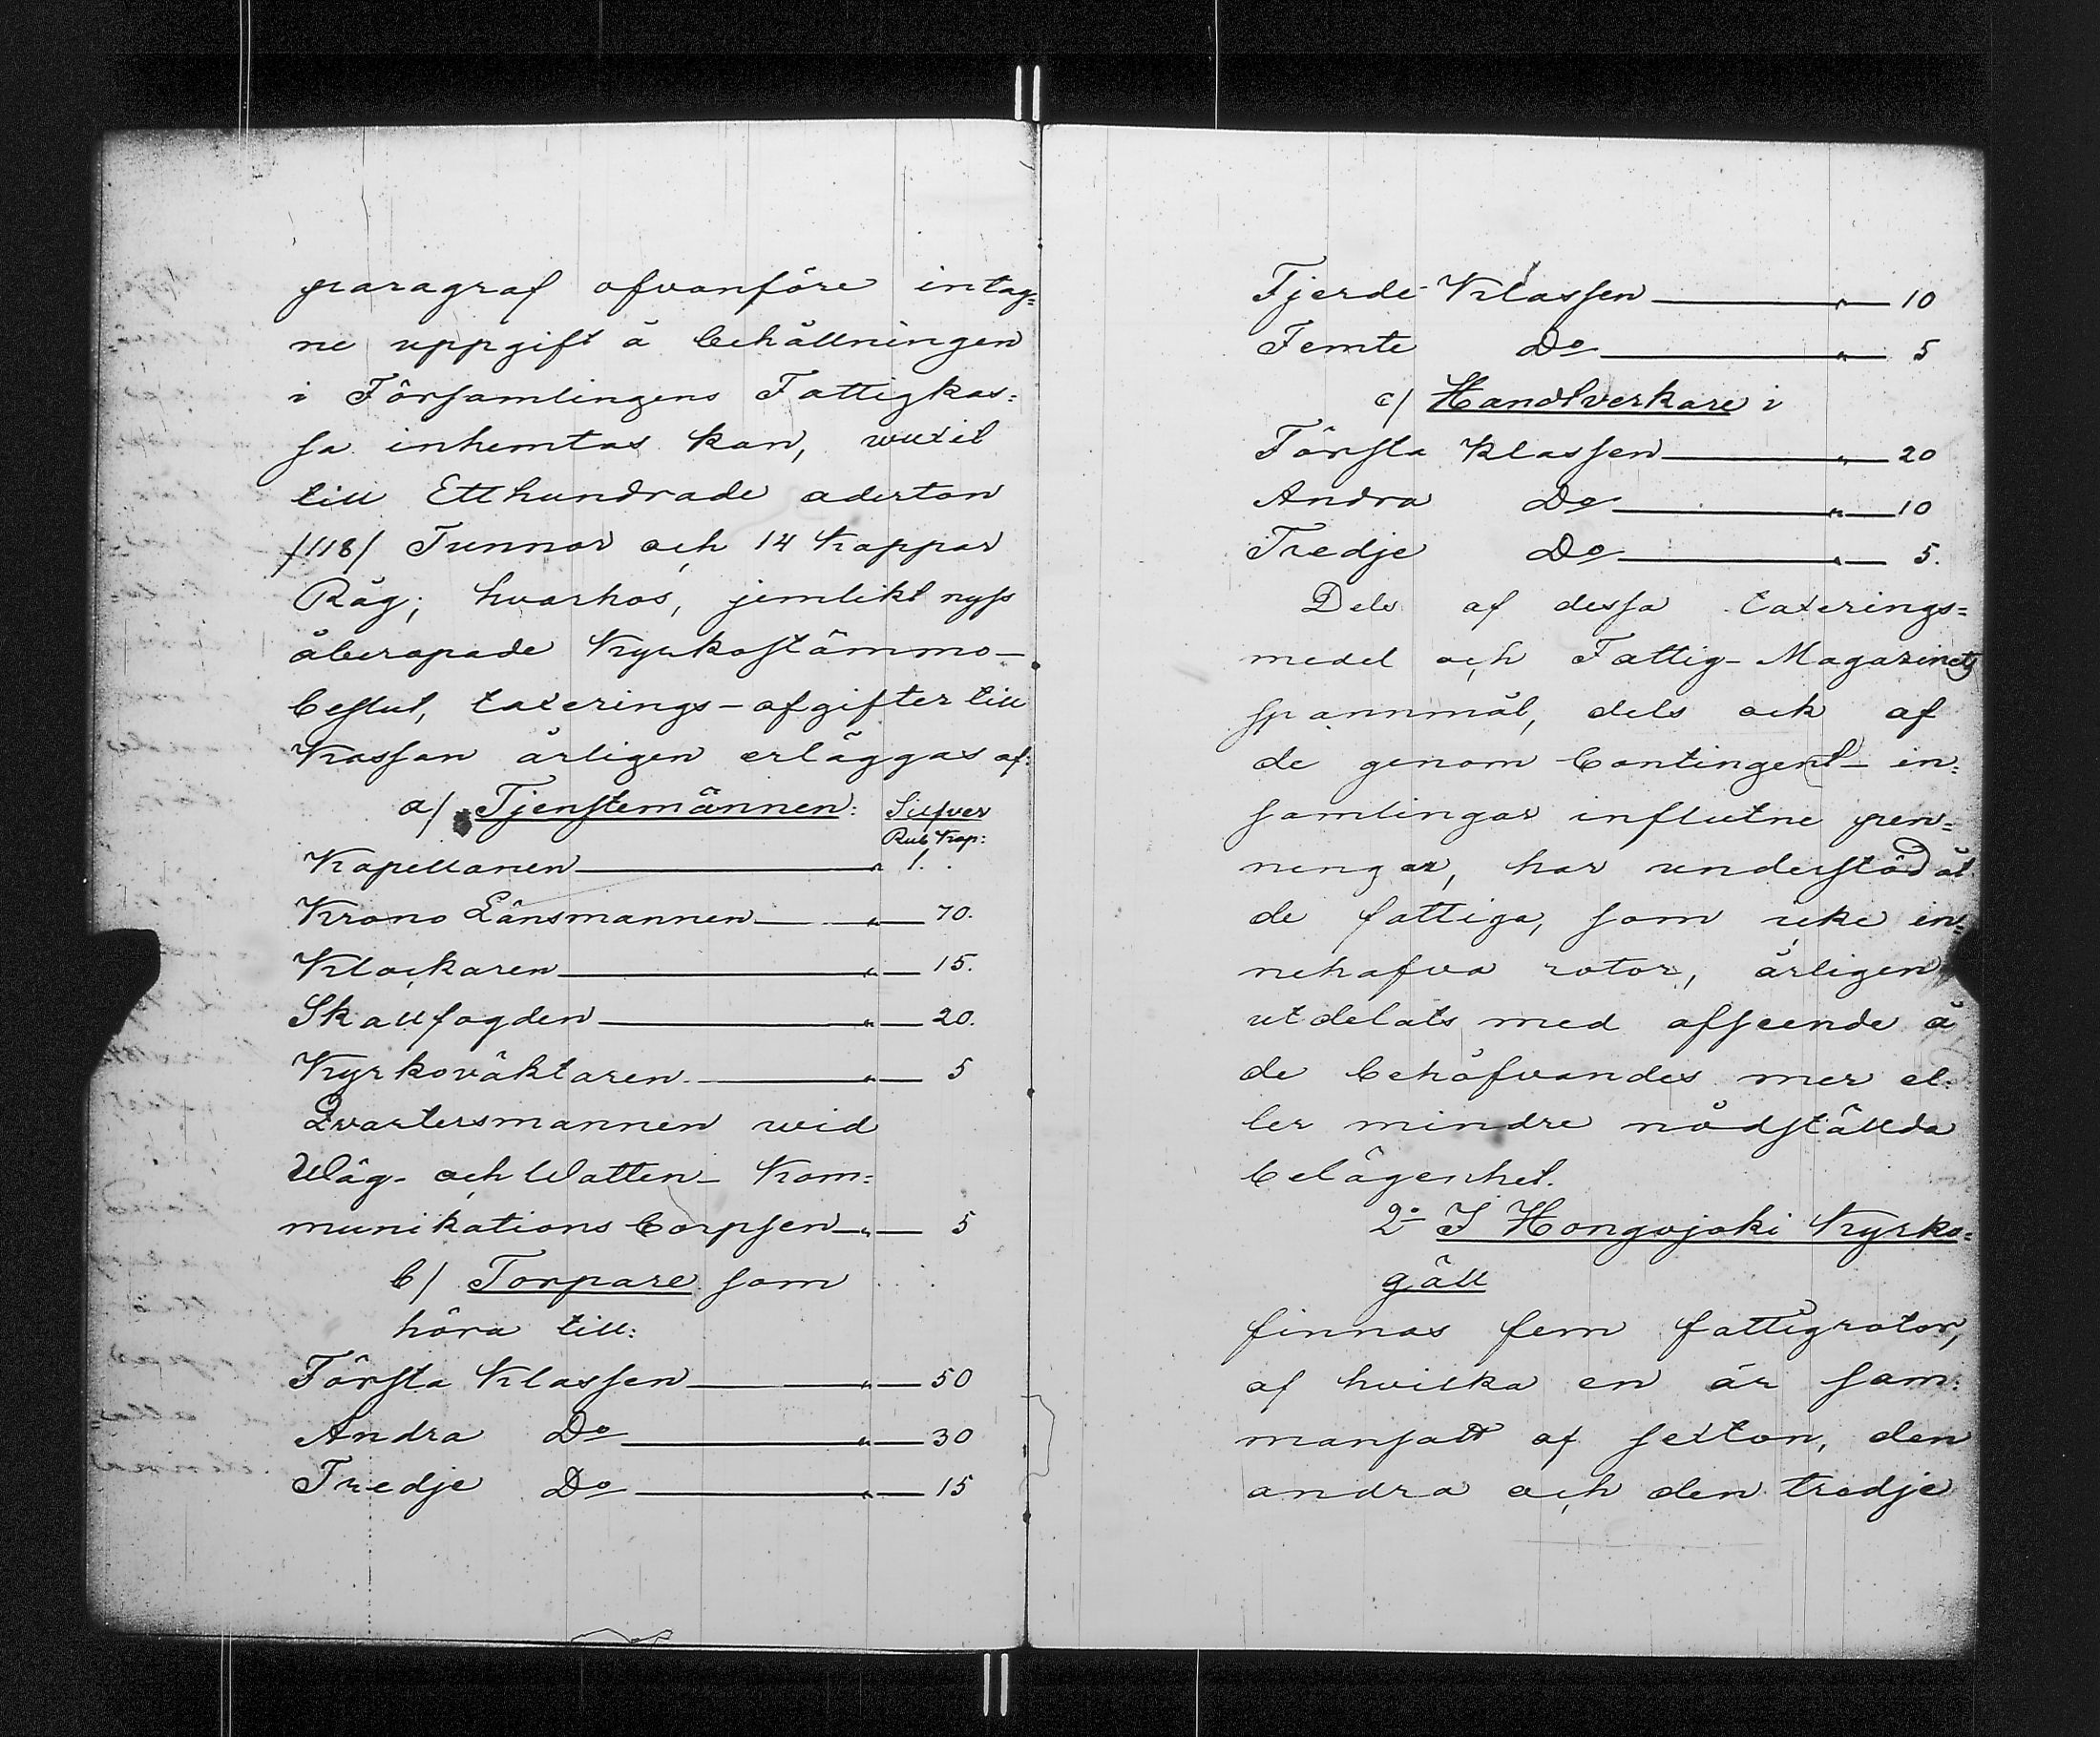 paragraf ofvanföre intag=
ne uppgift å behållningen
i Församlingens Fattigkas=
sa inhemtas kan, wuxit
till Etthundrade aderton
/118/ Tunnor och 14 Kappar
Råg; hvarhos, jemlikt nyss
åberopade Kyrkostämmo-
beslut, taxerings-afgifter till
Kassan årligen erläggas af:
a/ Tjenstemännen: Silfver
Rub Kop:
Kapellanen " 1.
Krono Länsmannen " 70.
Klockaren " 15.
Skallfogden " 20.
Kyrkoväktaren " 5
Qvartersmannen wid
Wäg- och Watten- Kom=
munikations Corpsen " 5
b/ Torpare som
höra till:
Första Klassen " 50
Andra Do " 30
Tredje Do " 15
Fjerde Klassen " 10
Femte Do " 5
c/ Handtverkare i
Första Klassen " 20
Andra Do " 10
Tredje Do " 5.
Dels af dessa taxerings=
medel och Fattig-Magazinets
spannmål, dels ock af
de genom Contingent- in=
samlingar influtne pen=
ningar, har understöd åt
de fattiga, som icke in=
nehafva rotor, årligen
utdelats med afseende å
de behöfvandes mer el=
ler mindre nödställda
belägenhet.
2o I Hongojoki Kyrko=
gäll
finnas fem fattigrotor,
af hvilka en är sam=
mansatt af sexton, den
andra och den tredje